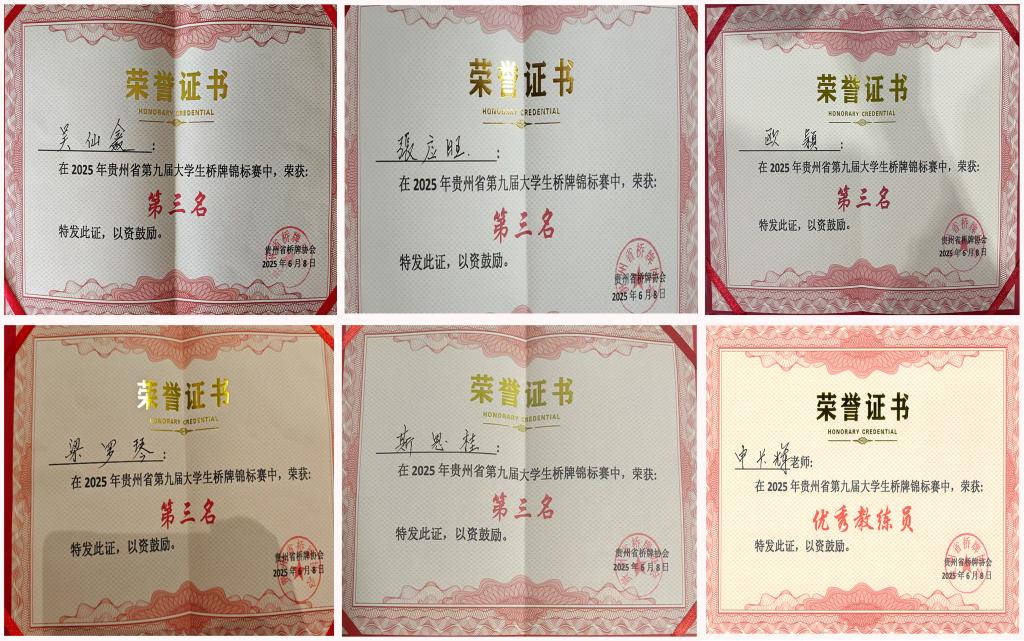 荣誉证书
HONORARY CREDENTIAL
吴仙鑫：
在 2025 年贵州省第九届大学生桥牌锦标赛中，荣获:
第三名
特发此证，以资鼓励。
贵州省桥牌协会
2025 年 6 月 8 日
荣誉证书
HONORARY CREDENTIAL
張应旺：
在 2025 年贵州省第九届大学生桥牌锦标赛中，荣获:
第三名
特发此证，以资鼓励。
贵州省桥牌协会
2025 年 6 月 8 日
荣誉证书
HONORARY CREDENTIAL
欧颖：
在 2025 年贵州省第九届大学生桥牌锦标赛中，荣获:
第三名
特发此证，以资鼓励。
贵州省桥牌协会
2025 年 6 月 8 日
荣誉证书
HONORARY CREDENTIAL
梁罗琴：
在 2025 年贵州省第九届大学生桥牌锦标赛中，荣获:
第三名
特发此证，以资鼓励。
贵州省桥牌协会
2025 年 6 月 8 日
荣誉证书
HONORARY CREDENTIAL
斯恩桂：
在 2025 年贵州省第九届大学生桥牌锦标赛中，荣获:
第三名
特发此证，以资鼓励。
贵州省桥牌协会
2025 年 6 月 8 日
荣誉证书
HONORARY CREDENTIAL
申大辉老师:
在 2025 年贵州省第九届大学生桥牌锦标赛中，荣获:
优秀教练员
特发此证，以资鼓励。
贵州省桥牌协会
2025 年 6 月 8 日